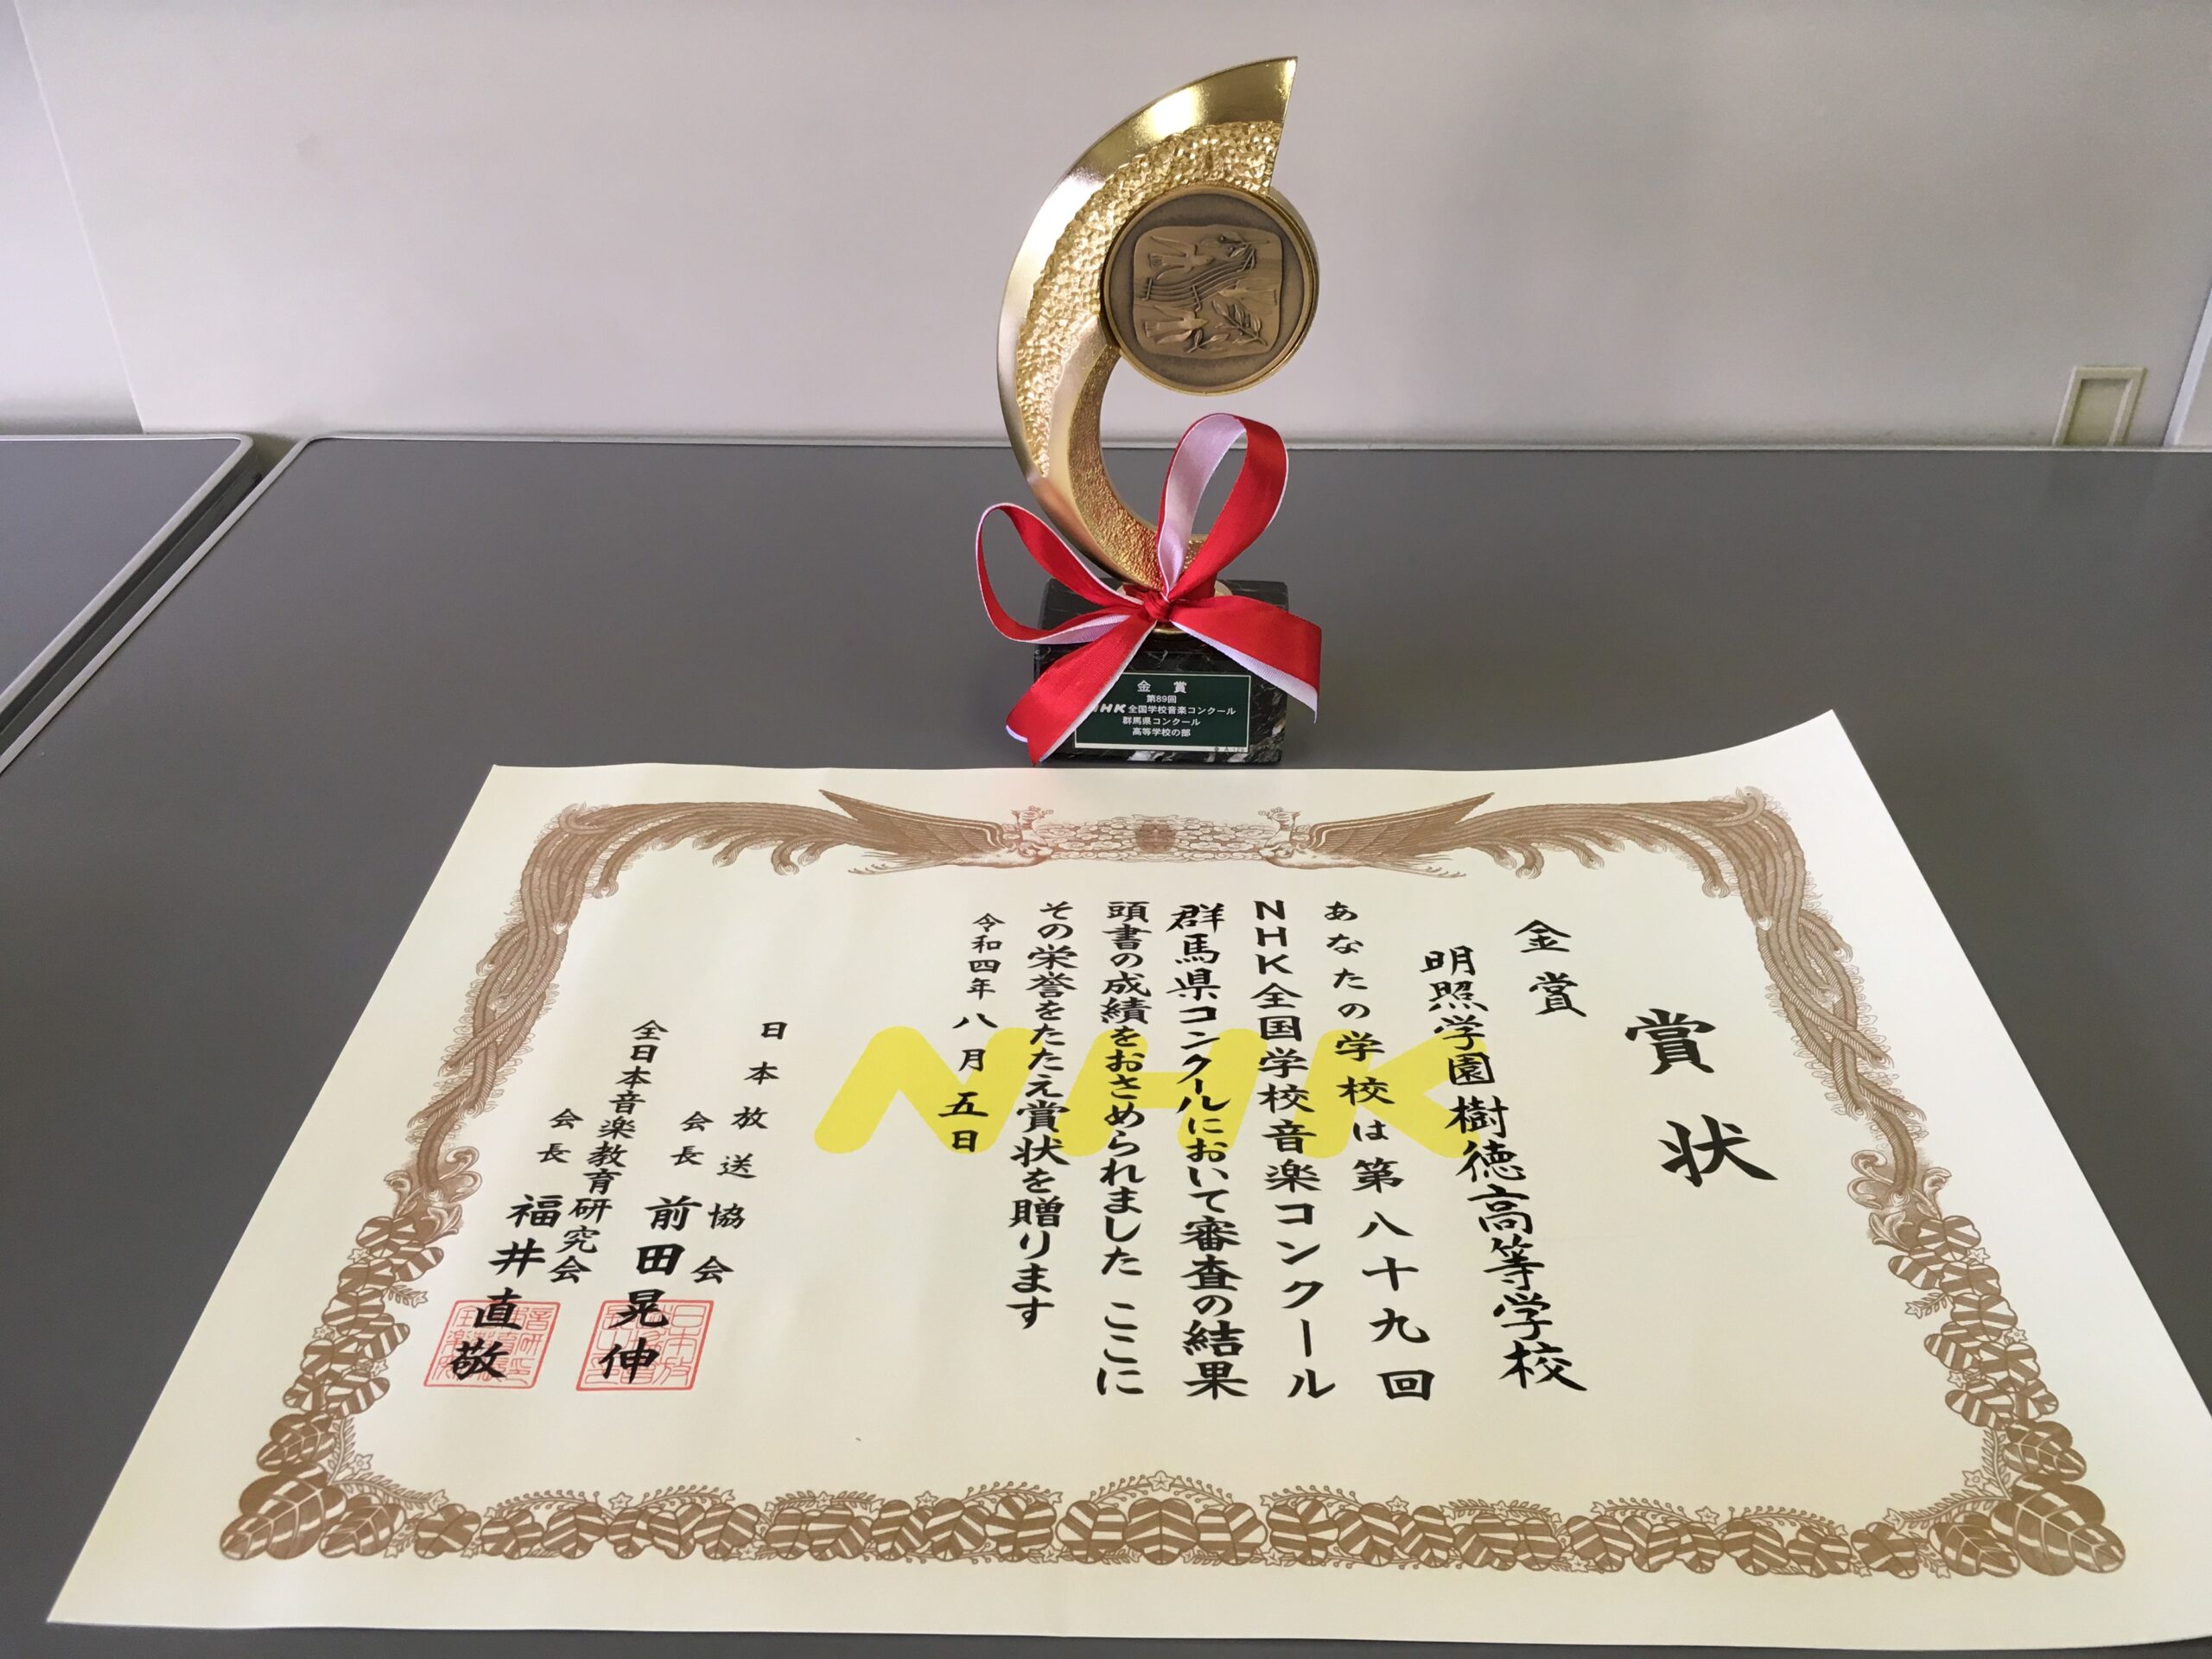 金賞
第89回
NHK全国学校音楽コンクール
群馬県コンクール
高等学校の部
賞状
金賞
明照学園樹徳高等学校
あなたの学校は第八十九回
NHK全国学校音楽コンクール
群馬県コンクールにおいて審査の結果
頭書の成績をおさめられました ここに
その栄誉をたたえ賞状を贈ります
令和四年八月五日
日本放送協会
会長 前田晃伸
全日本音楽教育研究会
会長 福井直敬
NHK